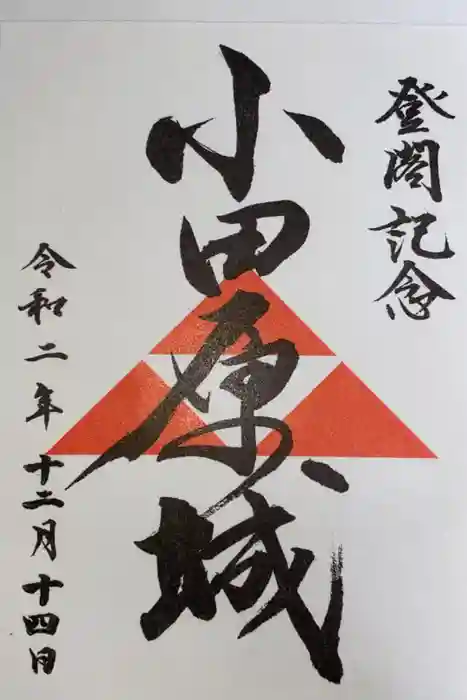 登閣記念
小田原城
令和二年十二月十四日